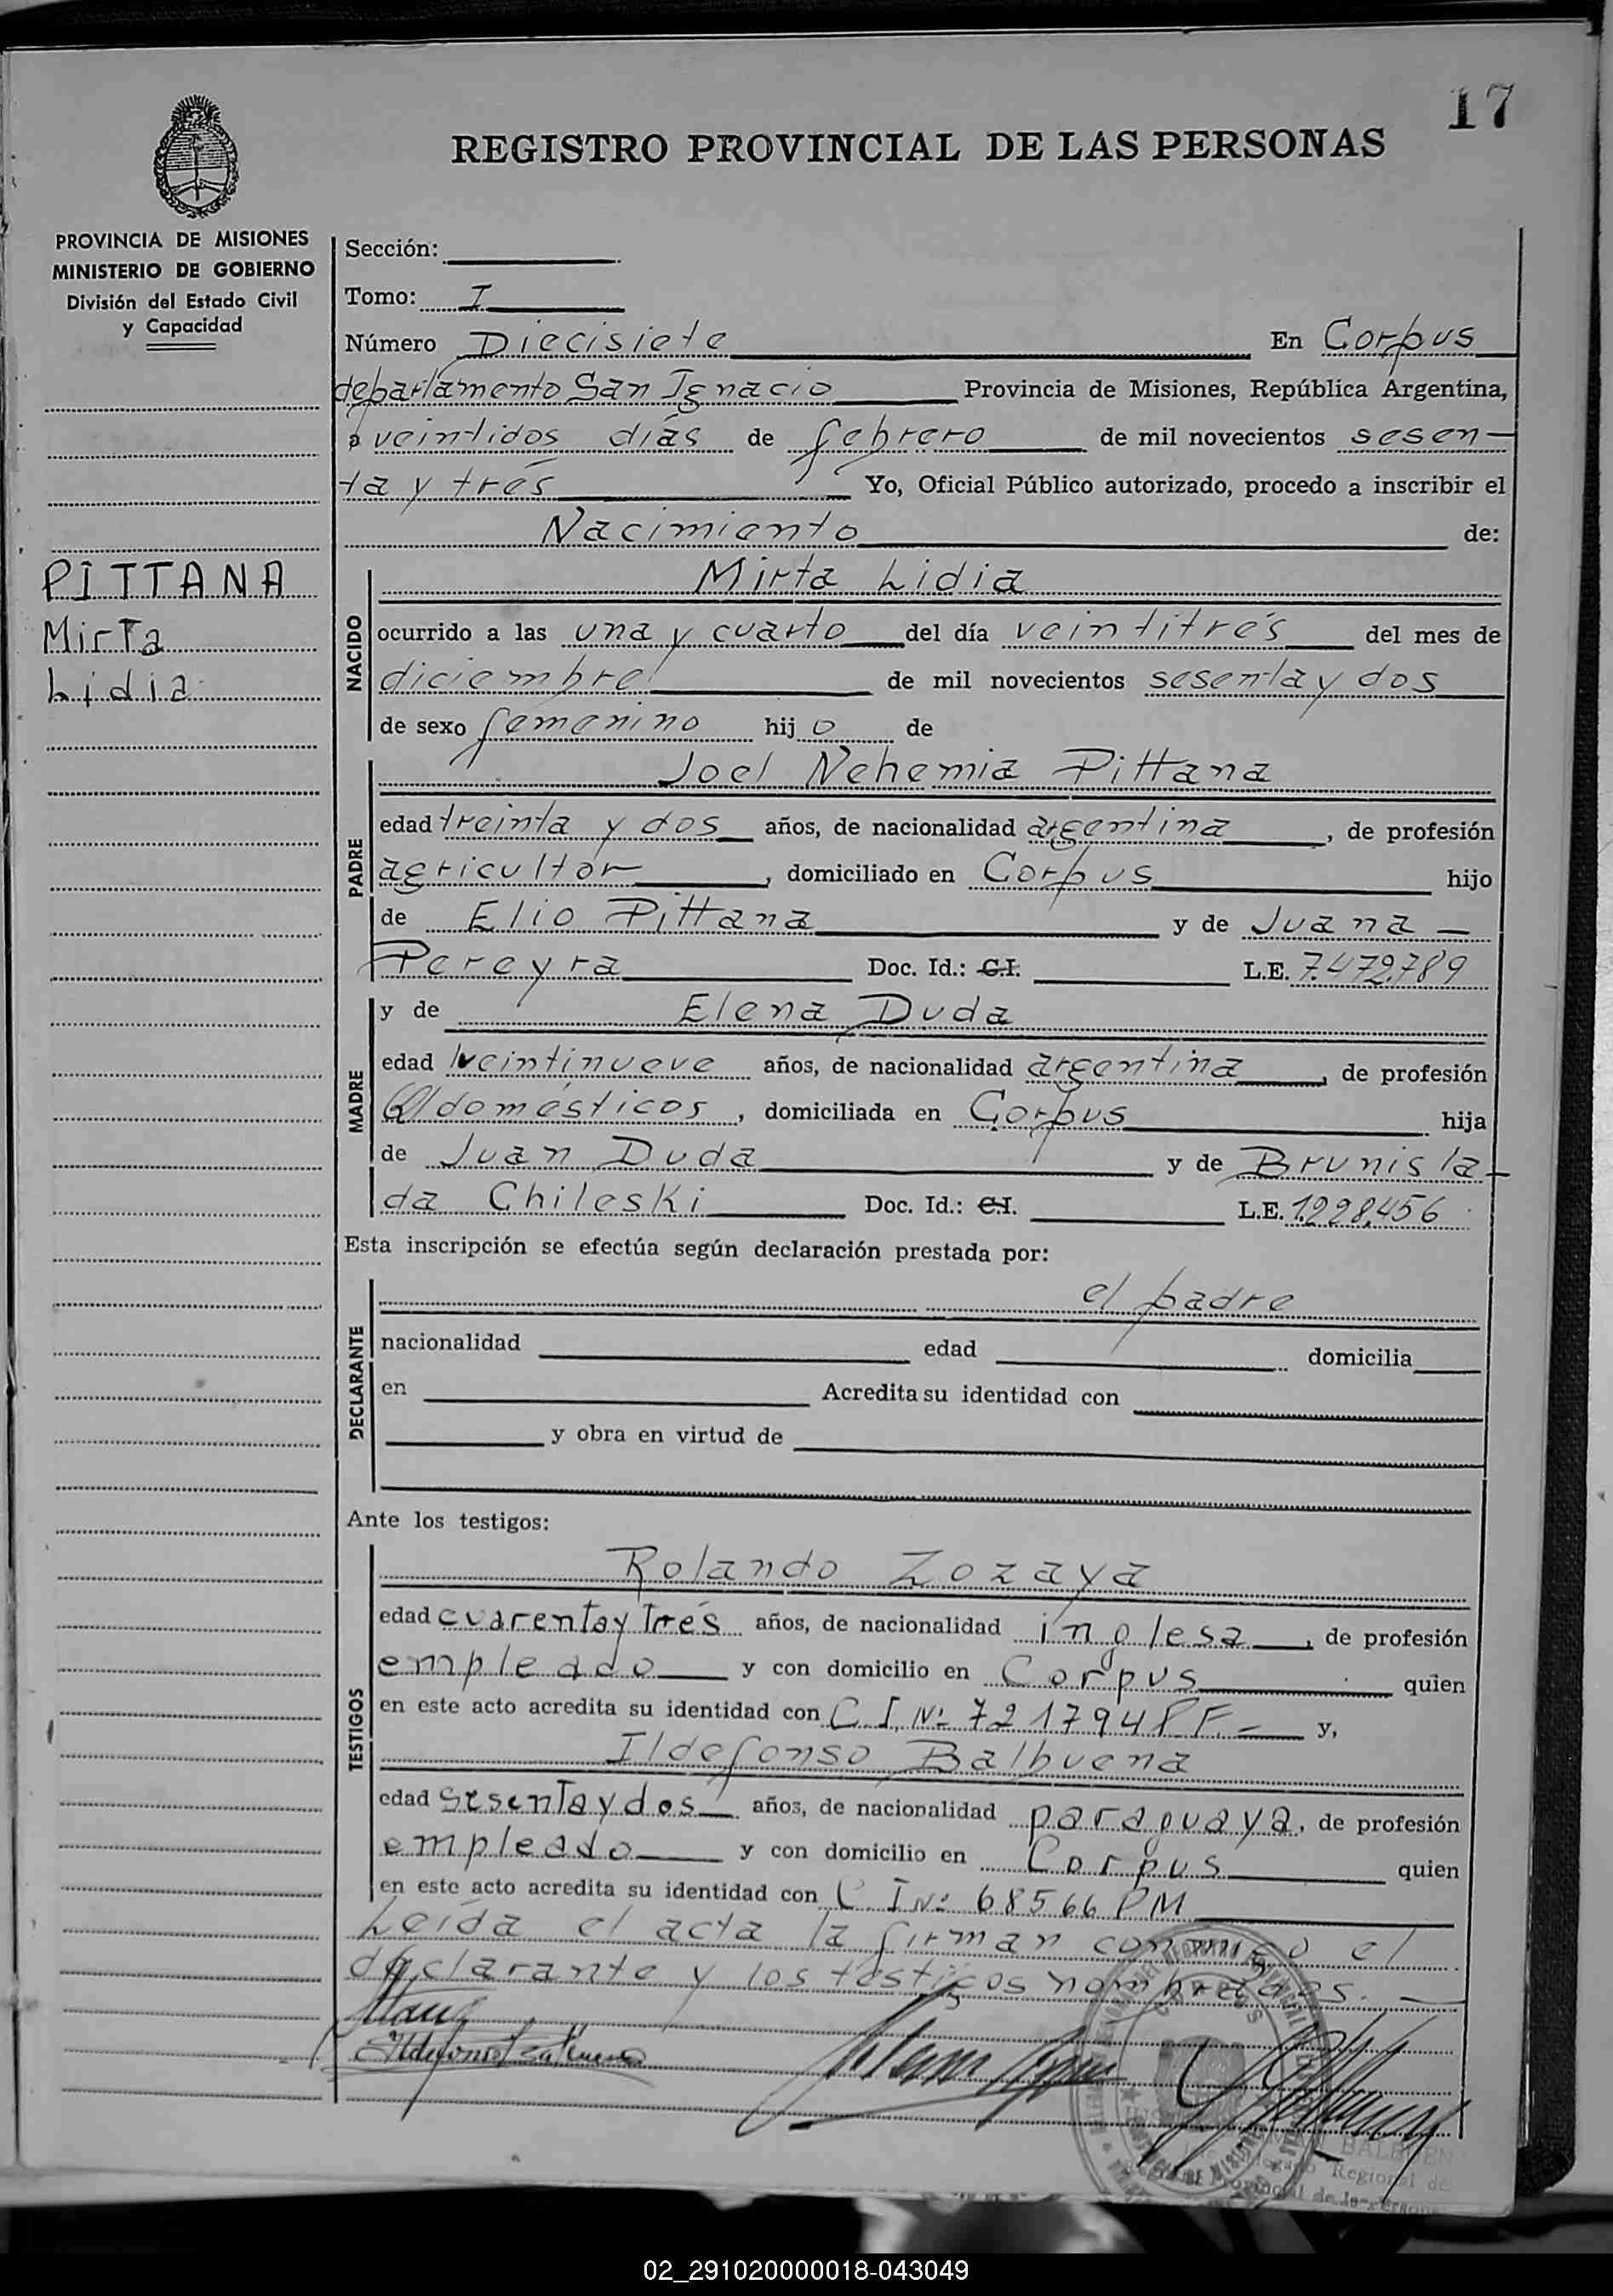 17
REGISTRO PROVINCIAL DE LAS PERSONAS
PROVINCIA DE MISIONES
MINISTERIO DE GOBIERNO
División del Estado Civil
y Capacidad
PITTANA
Mirta
Lidia
Sección:
Tomo: I
Número Diecisiete En Corpus
departamento San Ignacio Provincia de Misiones, República Argentina,
a veintidos días de febrero de mil novecientos sesen-
ta y trés Yo, Oficial Público autorizado, procedo a inscribir el
Nacimiento de:
NACIDO
Mirta Lidia
ocurrido a las una y cuarto del día veintitrés del mes de
diciembre de mil novecientos sesenta y dos
de sexo femenino hij o de
PADRE
Joel Nehemia Pittana
edad treinta y dos años, de nacionalidad argentina, de profesión
agricultor, domiciliado en Corpus hijo
de Elio Pittana y de Juana -
Pereyra Doc. Id.: C.I. L.E. 7.472.789
MADRE
y de Elena Duda
edad veintinueve años, de nacionalidad argentina, de profesión
Q/domésticos, domiciliada en Corpus hija
de Juan Duda y de Brunisla-
da Chileski Doc. Id.: C.I. L.E. 1.228.456
Esta inscripción se efectúa según declaración prestada por:
DECLARANTE
el padre
nacionalidad edad domicilia
en Acredita su identidad con
y obra en virtud de
Ante los testigos:
TESTIGOS
Rolando Zozaya
edad cuarenta y trés años, de nacionalidad inglesa, de profesión
empleado y con domicilio en Corpus quien
en este acto acredita su identidad con C.I. Nº 7217948 P.F. - y,
Ildefonso Balbuena
edad sesenta y dos años, de nacionalidad paraguaya, de profesión
empleado y con domicilio en Corpus quien
en este acto acredita su identidad con C.I. Nº 68566 PM
Leída el acta la firman conmigo el
declarante y los testigos nombrados. -
Ildefonso Balbuena
Regional de
02_291020000018-043049